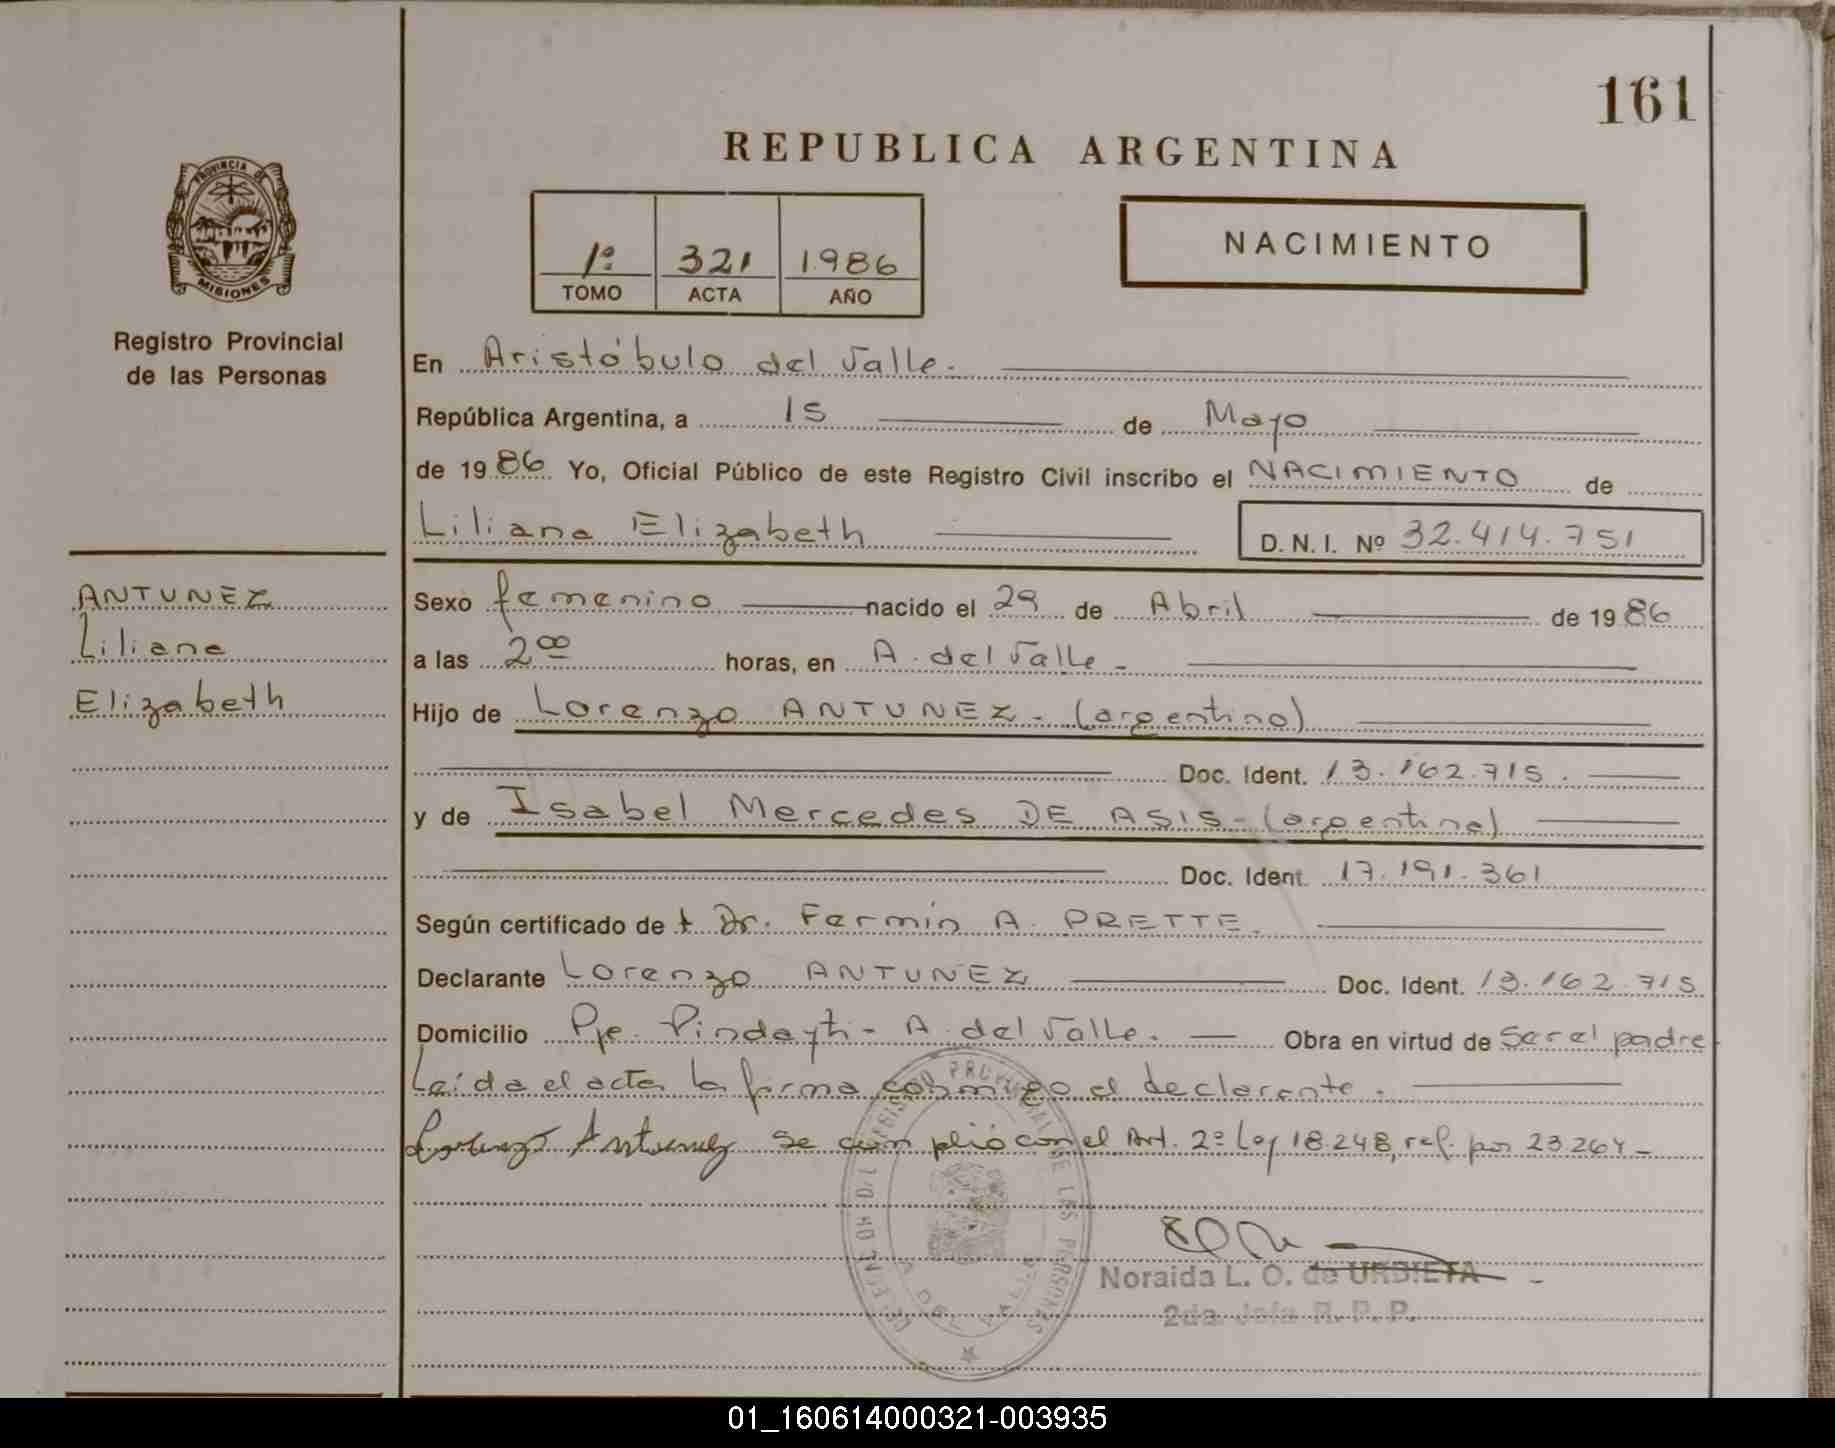 161
REPUBLICA ARGENTINA
PROVINCIA DE
MISIONES
Registro Provincial
de las Personas
1º 321 1986
TOMO ACTA AÑO
NACIMIENTO
En Aristóbulo del Valle.
República Argentina, a 15 de Mayo
de 1986 Yo, Oficial Público de este Registro Civil inscribo el NACIMIENTO de
Liliana Elizabeth D.N.I. Nº 32.414.751
ANTUNEZ
Liliana
Elizabeth
Sexo femenino nacido el 29 de Abril de 1986
a las 2 00 horas, en A. del Valle -
Hijo de Lorenzo ANTUNEZ - (argentino)
Doc. Ident. 13.162.715.
y de Isabel Mercedes DE ASIS - (argentina)
Doc. Ident. 17.191.361
Según certificado de t Dr. Fermín A. PRETTE.
Declarante Lorenzo ANTUNEZ Doc. Ident. 13.162.715
Domicilio Pje. Pindayti - A. del Valle. Obra en virtud de ser el padre
Leída el acta la firma conmigo el declarante.
Lorenzo Antunez se cumplió con el Art. 2º Ley 18.248, ref. por 23264 -
REGISTRO PROVINCIAL DE LAS PERSONAS
A. DEL VALLE
Noraida L. O. de URBIETA
2da. Jefa R. P. P.
01_160614000321-003935